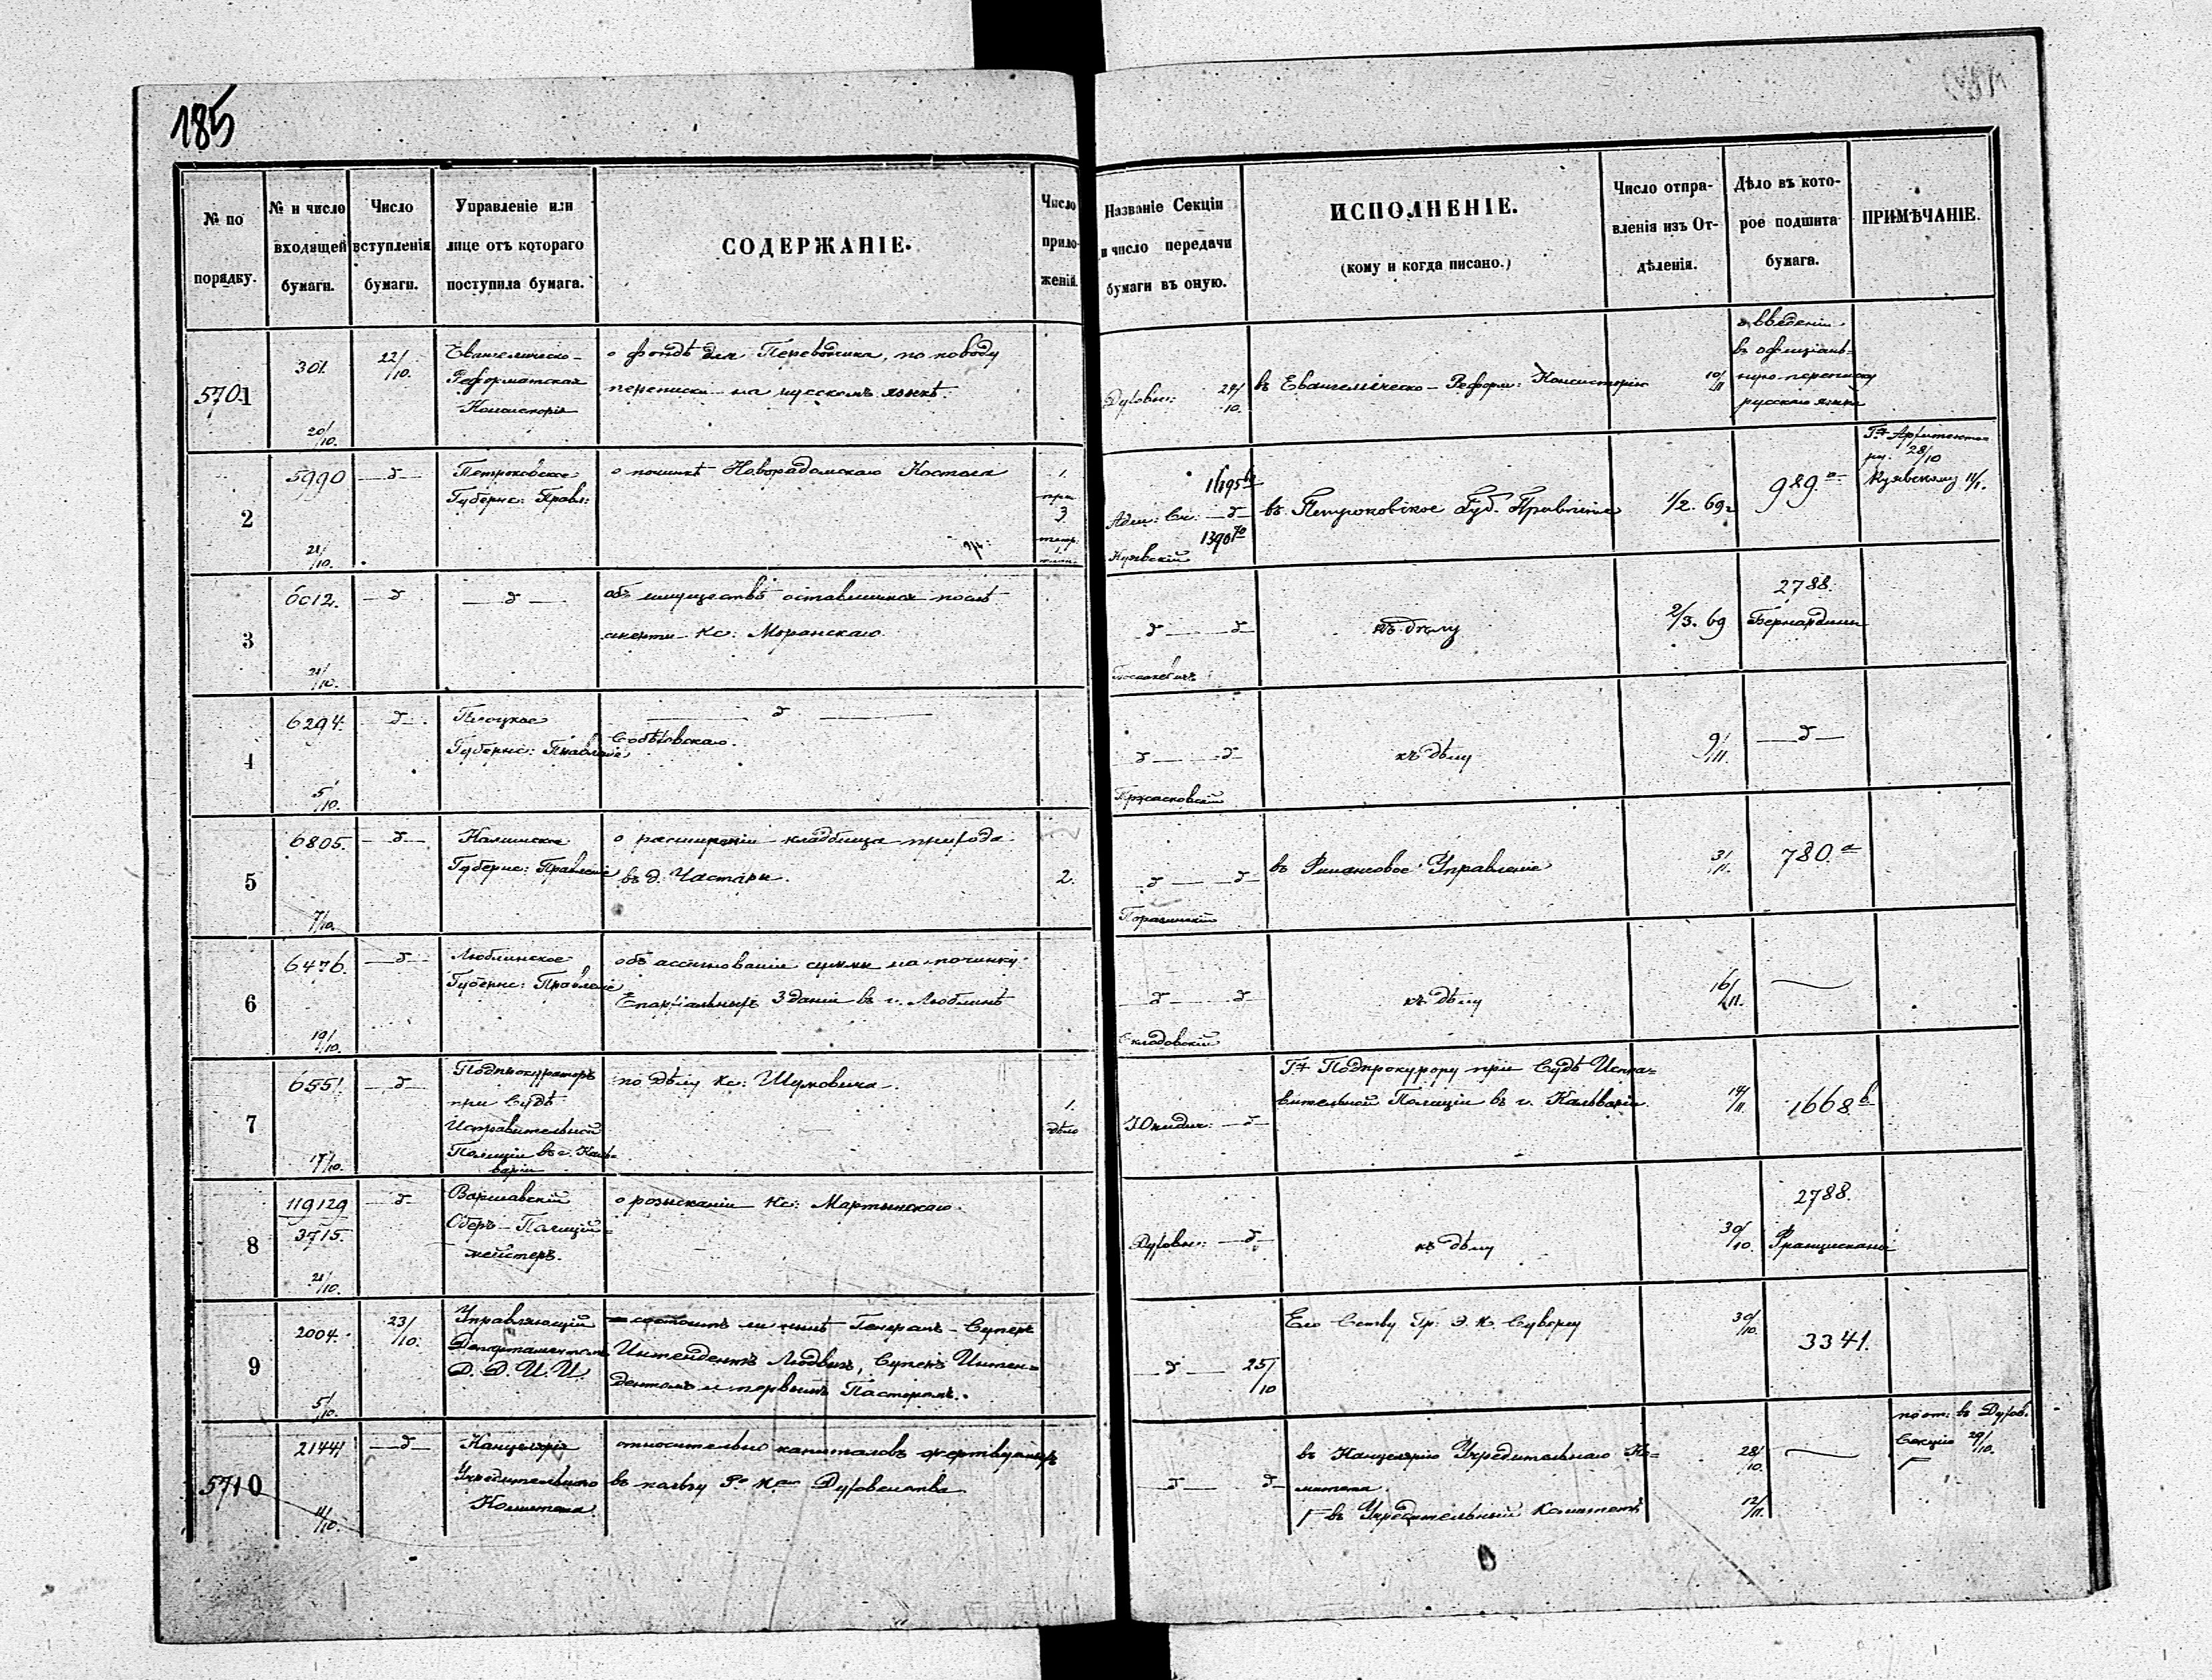 185
№ по порядку.
№ и число входящей бумаги.
Число вступленія бумаги.
Управленіе или лице отъ котораго поступила бумага.
СОДЕРЖАНІЕ.
Число приложеній.
Названіе Секціи и число передачи бумаги въ оную.
ИСПОЛНЕНІЕ.
(кому и когда писано.)
Число отправленія изъ Отдѣленія.
Дѣло въ которое подшита бумага.
ПРИМѢЧАНІЕ.
5701
301.
20/10.
22/10.
Евангелическо-
Реформатская
Консисторія
о фондѣ для Переводчика, по поводу
переписки на русскомъ языкѣ.
Духовн:
24/10.
въ Евангелическо-Реформ: Консисторію
10/11
о введеніи
въ офиціаль-
ную переписку
русскаго языка
2
5990
21/10.
—д—
Петроковское
Губернс: Правл:
о починкѣ Новорадомскаго Костела
1.
3.
1.
Адм: Ск: —д—
Куявскій
въ Петроковское Губ. Правленіе
1/2. 69
989.
28/10
Куявскому 11/1.
3
6012.
21/10.
—д—
—д—
объ имуществѣ оставшемся послѣ
смерти Кс: Моранскаго.
д — д
къ дѣлу
2/3. 69
2788.
Бернардины
4
6294.
5/10.
—д—
Плоцкое
Губернс: Правленіе
— д —
д — д
Кржасковскій
къ дѣлу
9/11.
—д—
5
6805.
7/10.
—д—
Калишское
Губернс: Правленіе
о расширеніи кладбища прихода
въ д. Частары.
2.
д — д
въ Финансовое Управленіе
3/11.
780.a
6
6476.
19/10.
—д—
Люблинское
Губернс: Правленіе
объ ассигнованіи суммы на починку
Епархіальныхъ Зданій въ г. Люблинѣ
д — д
Складовскій
къ дѣлу
16/11.
7
6551.
17/10.
—д—
Подпрокуроръ
при Судѣ
Исправительной
Полиціи въ г. Каль-
варіи
по дѣлу Кс: Шумовича.
1.
дѣло
Юридич: —д—
Гну Подпрокурору при Судѣ Испра-
вительной Полиціи въ г. Кальваріи.
14/11.
1668b
8
119129
3715.
21/10.
—д—
Варшавскій
Оберъ-Полицій-
мейстеръ.
о розысканіи Кс: Мартынскаго.
Духовн: —д—
къ дѣлу
30/10.
2788.
Францискане
9
2004.
5/10.
23/10.
Управляющій
Департаментомъ
Д. Д. И. И.
состоитъ ли нынѣ Генералъ-Суперъ
Интендентъ Людвигъ, Суперъ Интен-
дентомъ и первымъ Пасторомъ.
— д — 25/10
Его Сству Гр: Э. К. Сиверсу
30/10.
3341.
5710
21441
11/10.
—д—
Канцелярія
Учредительнаго
Комитета.
относительно капиталовъ жертвуемыхъ
въ пользу Р. К. Духовенства
д — д
въ Канцелярію Учредительнаго Ко-
митета.
въ Учредительный Комитетъ
28/10.
12/11.
въ Духов.
Секцію 29/10.